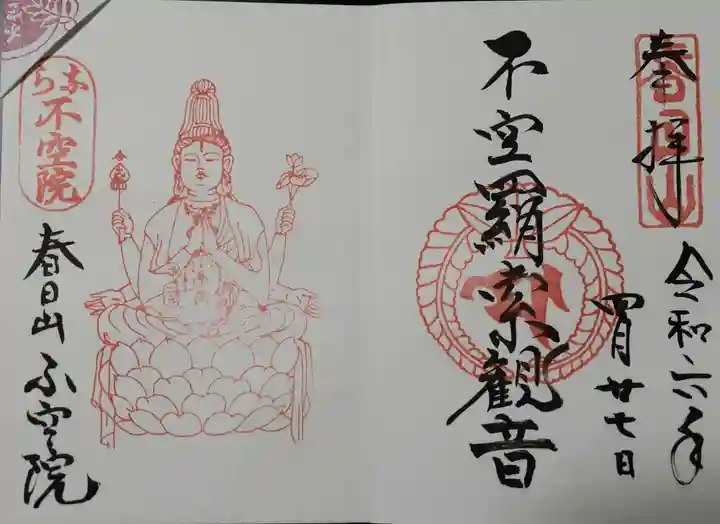 奉拝
春日山
令和六年
四月廿七日
不空羂索観音
なら
不空院
春日山 不空院